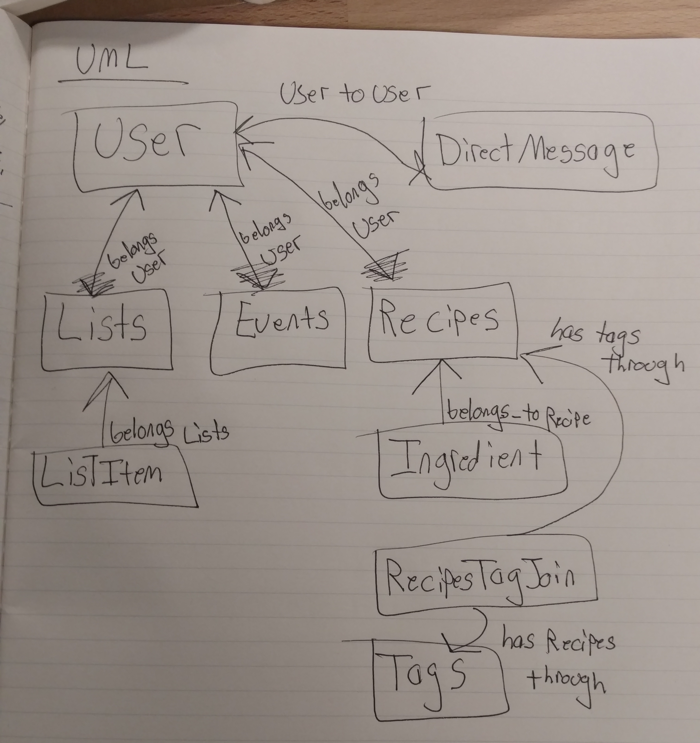 UML
User to User
User
Direct Message
belongs
User
belongs
User
belongs
User
Lists
Events
Recipes
has tags
through
belongs Lists
belongs_to Recipe
ListItem
Ingredient
RecipesTagJoin
has Recipes
through
Tags